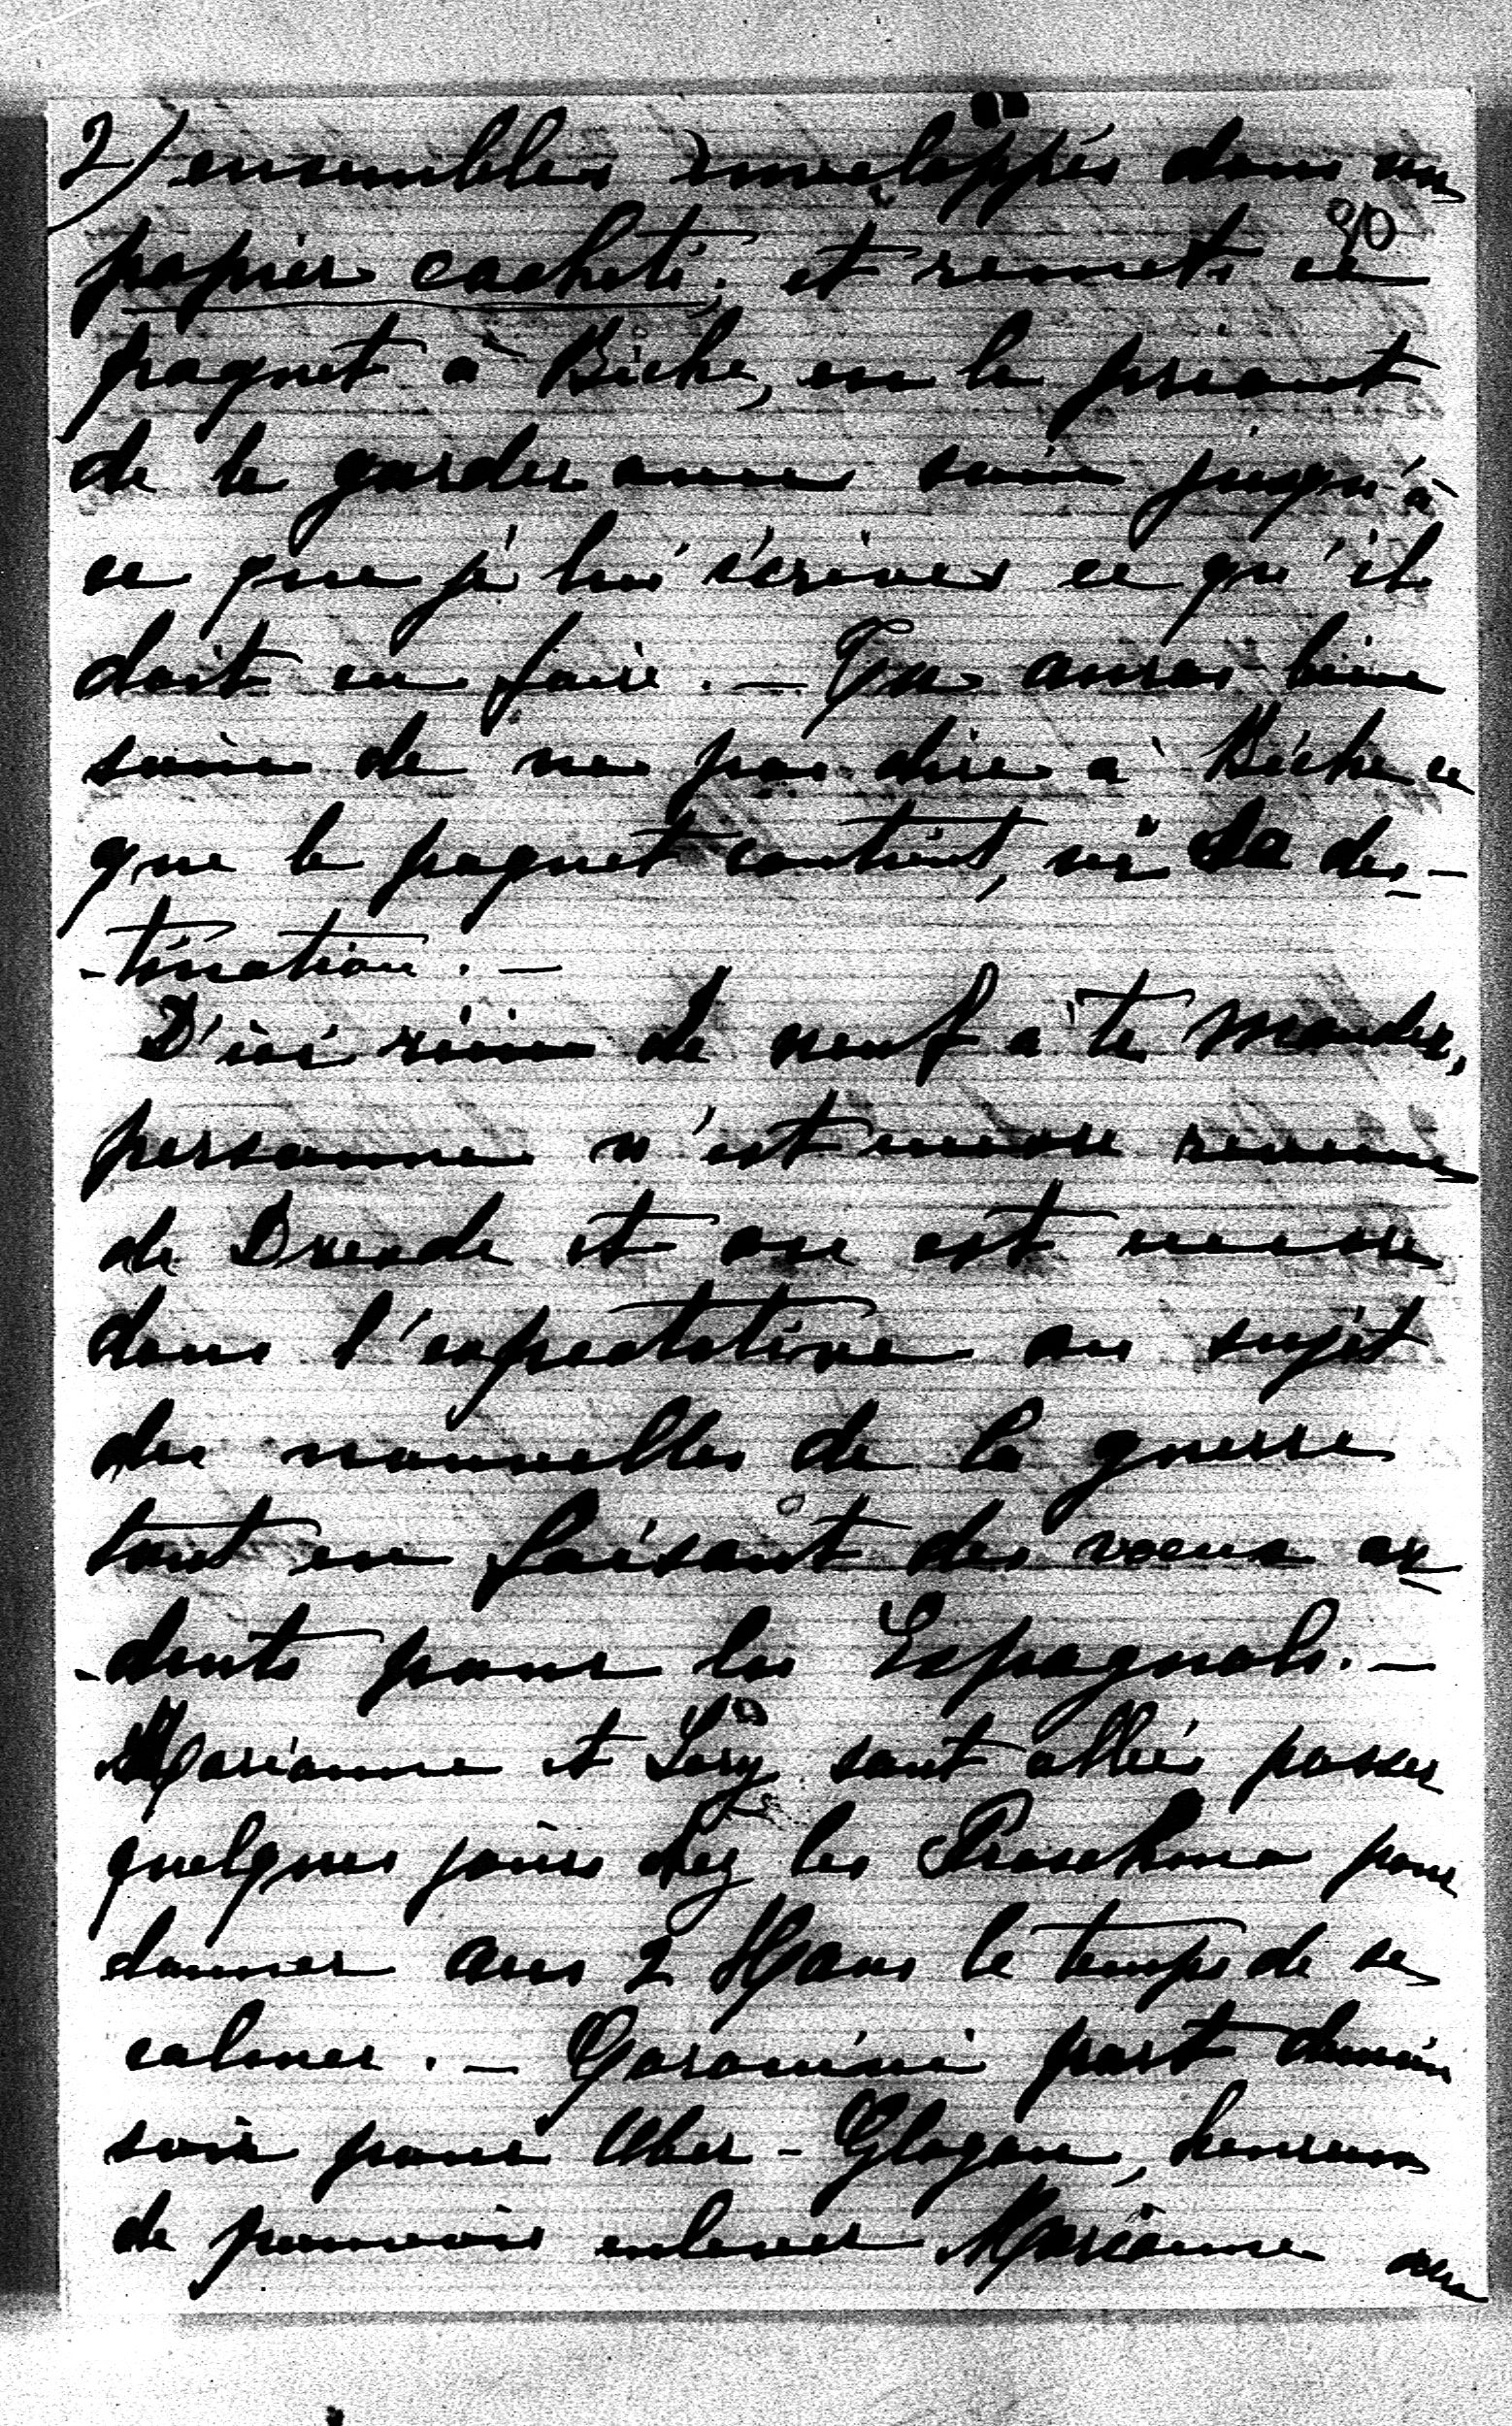 2) ensembles enveloppés dans un
90
papier cacheté, et remets ce
paquet à Biche, en le priant
de le garder avec soin jusqu'à
ce que je lui écrives ce qu'il
doit en faire. — Tu auras bien
soin de ne pas dire à Biche ce
que le paquet contient, ni sa des-
-tination. —
D'ici rien de neuf à te mander,
personne n'est encore revenu
de Dresde et on est encore
dans l'expectative au sujet
des nouvelles de la guerre
tout en faisant des voeux ar
-dents pour les Espagnols. —
Marianne et Lory sont allés passer
quelques jours chez les pour
donner aux 2 Hans le temps de se
calmer. — part demain
soir pour Ober-Glogau, heureux
de pouvoir enlever Marianne